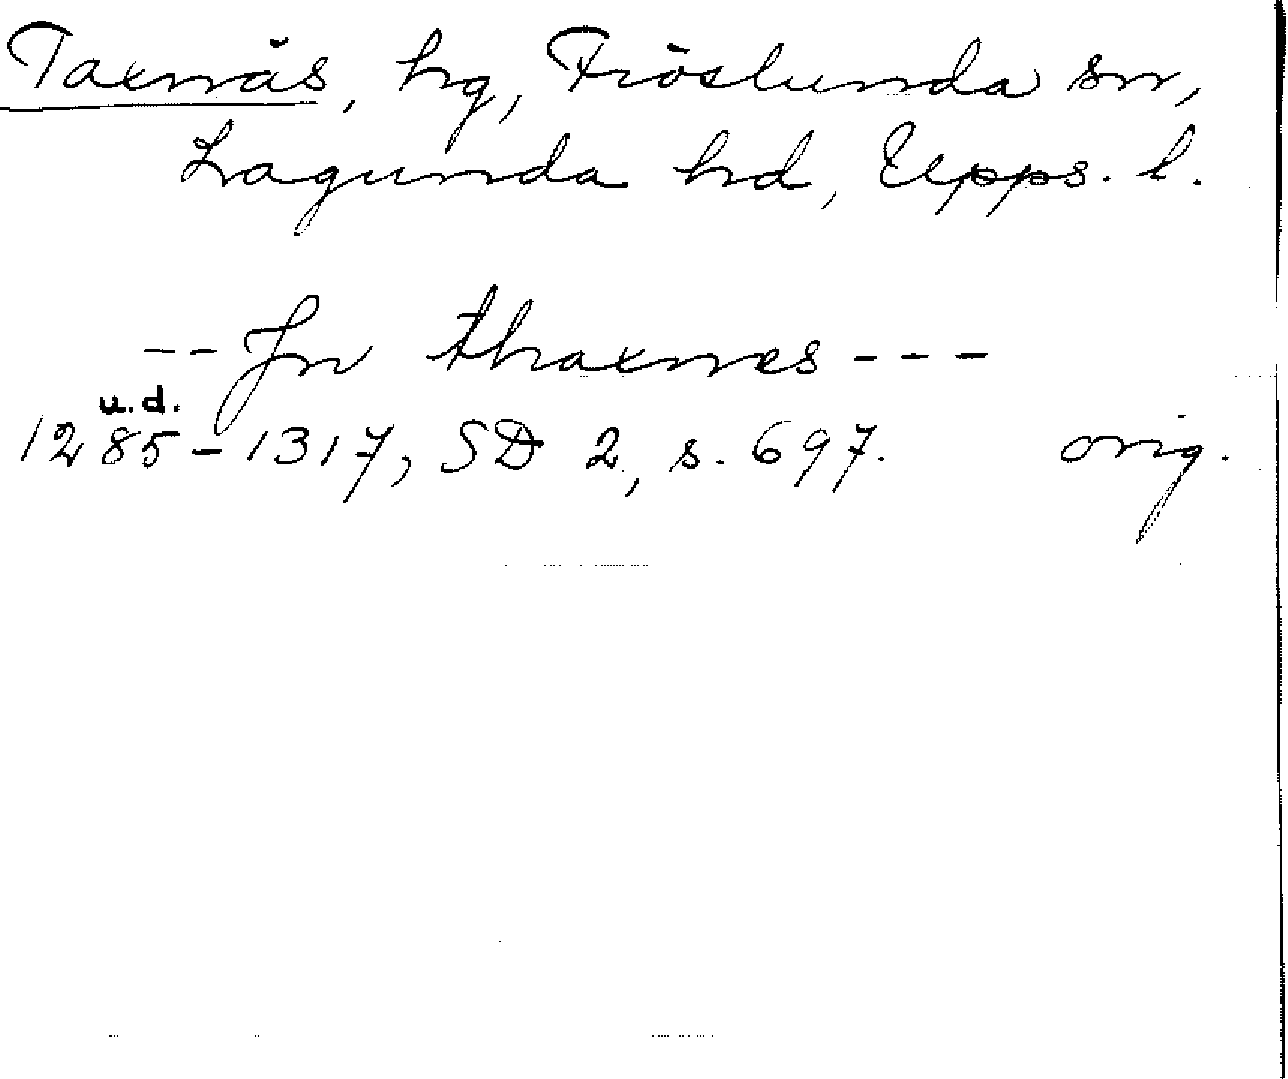 Taxnäs, hg, Fröslunda sn,
Lagunda hd, Upps. l.
-- Jn thaxnes ---
u.d.
1285-1317, SD 2, s. 697. orig.